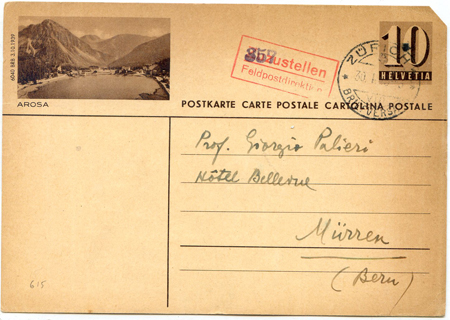 10
HELVETIA
ZÜRICH
Feldpostdirektion
AROSA
POSTKARTE CARTE POSTALE CARTOLINA POSTALE
Prof. Giorgio Palieri
Hôtel Bellevue
Mürren
(Bern)
615